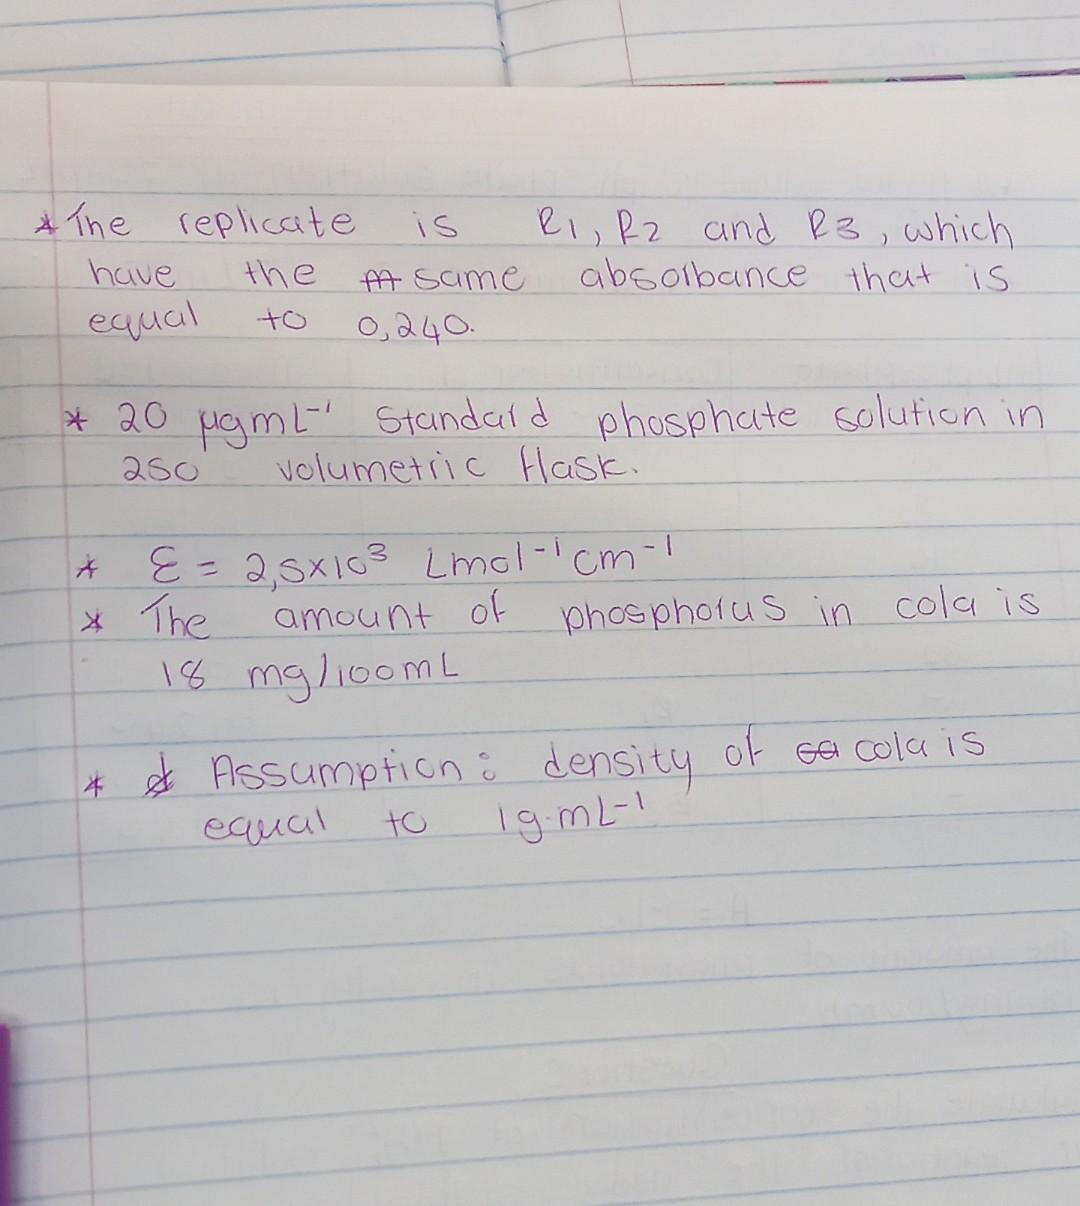 * The replicate is R1, R2 and R3, which
have the same absorbance that is
equal to 0,240.
* 20 µgmL⁻¹ standard phosphate solution in
250 volumetric flask.
* Ɛ = 2,5x10³ Lmol⁻¹cm⁻¹
* The amount of phosphorus in cola is
18 mg/100mL
* Assumption: density of cola is
equal to 1g.mL⁻¹